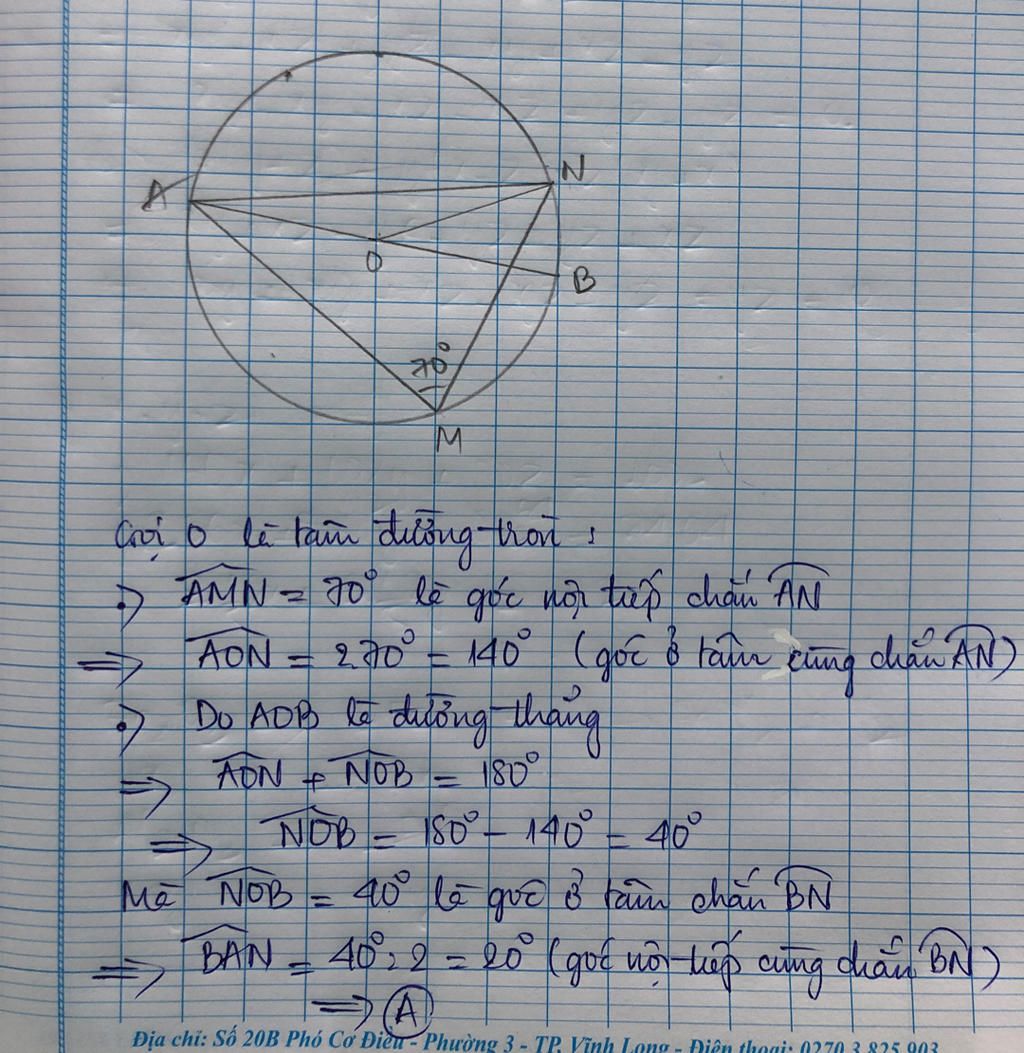 A
N
O
B
70°
M
Gọi O là tâm đường tròn:
•) AMN = 70° là góc nội tiếp chắn AN
=> AON = 2.70° = 140° (góc ở tâm cùng chắn AN)
•) Do AOB là đường thẳng
=> AON + NOB = 180°
=> NOB = 180° - 140° = 40°
Mà NOB = 40° là góc ở tâm chắn BN
=> BAN = 40° : 2 = 20° (góc nội tiếp cùng chắn BN)
=> A
Địa chỉ: Số 20B Phó Cơ Điều - Phường 3 - TP. Vĩnh Long - Điện thoại: 0270 3 825 903